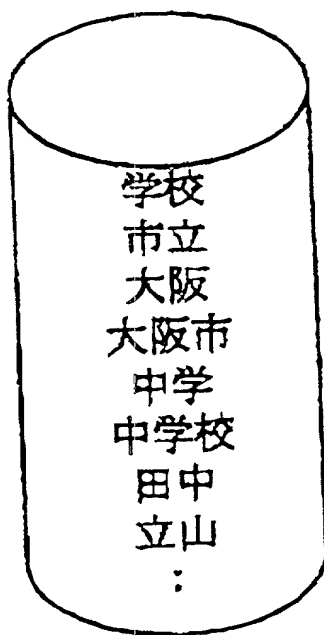 学校
市立
大阪
大阪市
中学
中学校
田中
立山
: